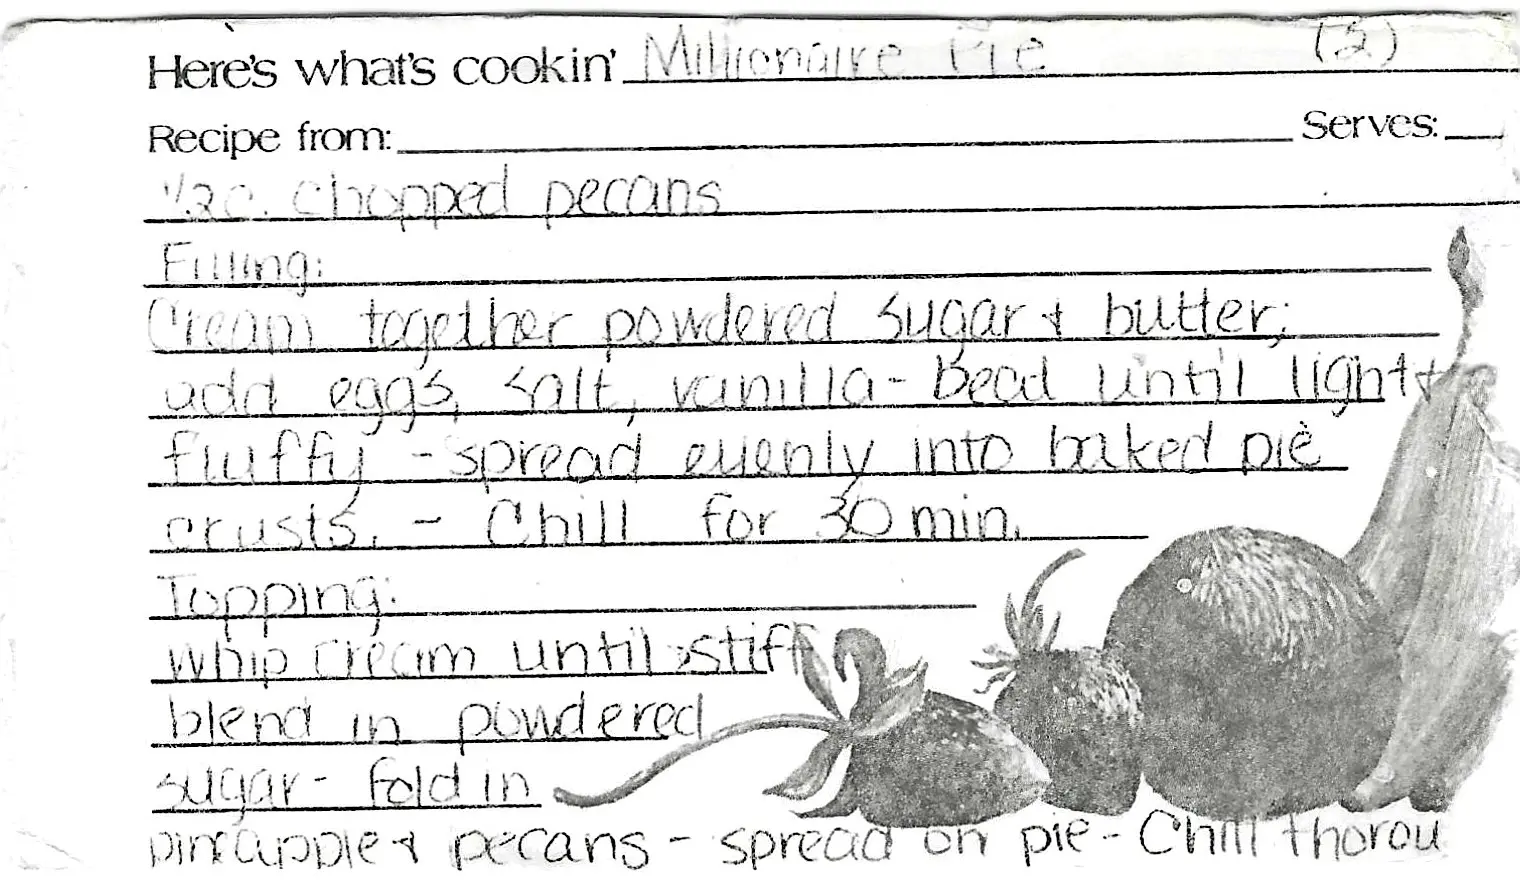 Here's what's cookin' Millionaire Pie (2)
Recipe from: Serves:
1/2 c. chopped pecans
Filling:
Cream together powdered sugar & butter;
add eggs, salt, vanilla - Beat until light &
fluffy - spread evenly into baked pie
crusts. - Chill for 30 min.
Topping:
Whip cream until stiff
blend in powdered
sugar - Fold in
pineapple & pecans - spread on pie - Chill thorou